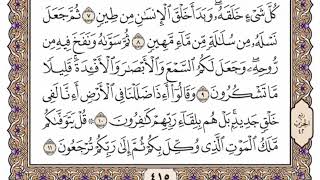 كُلَّ شَىْءٍ خَلَقَهُۥ ۖ وَبَدَأَ خَلْقَ ٱلْإِنسَٰنِ مِن طِينٍ ٧ ثُمَّ جَعَلَ
نَسْلَهُۥ مِن سُلَٰلَةٍ مِّن مَّآءٍ مَّهِينٍ ٨ ثُمَّ سَوَّىٰهُ وَنَفَخَ فِيهِ مِن
رُّوحِهِۦ ۖ وَجَعَلَ لَكُمُ ٱلسَّمْعَ وَٱلْأَبْصَٰرَ وَٱلْأَفْـِٔدَةَ ۚ قَلِيلًا
مَّا تَشْكُرُونَ ٩ وَقَالُوٓا۟ أَءِذَا ضَلَلْنَا فِى ٱلْأَرْضِ أَءِنَّا لَفِى
خَلْقٍ جَدِيدٍۭ ۚ بَلْ هُم بِلِقَآءِ رَبِّهِمْ كَٰفِرُونَ ١٠ قُلْ يَتَوَفَّىٰكُم
مَّلَكُ ٱلْمَوْتِ ٱلَّذِى وُكِّلَ بِكُمْ ثُمَّ إِلَىٰ رَبِّكُمْ تُرْجَعُونَ ١١
٤١٥